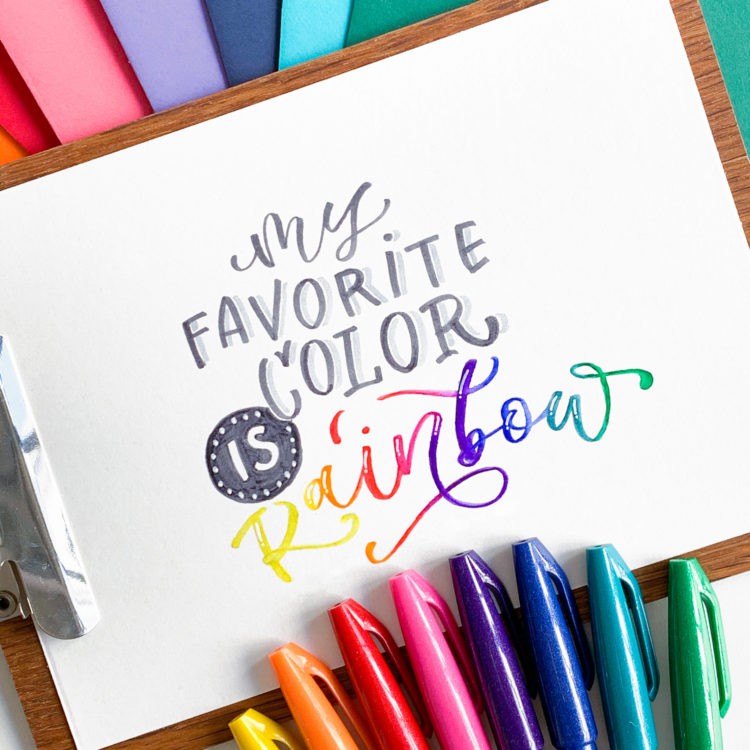 my
FAVORITE
COLOR
IS
Rainbow